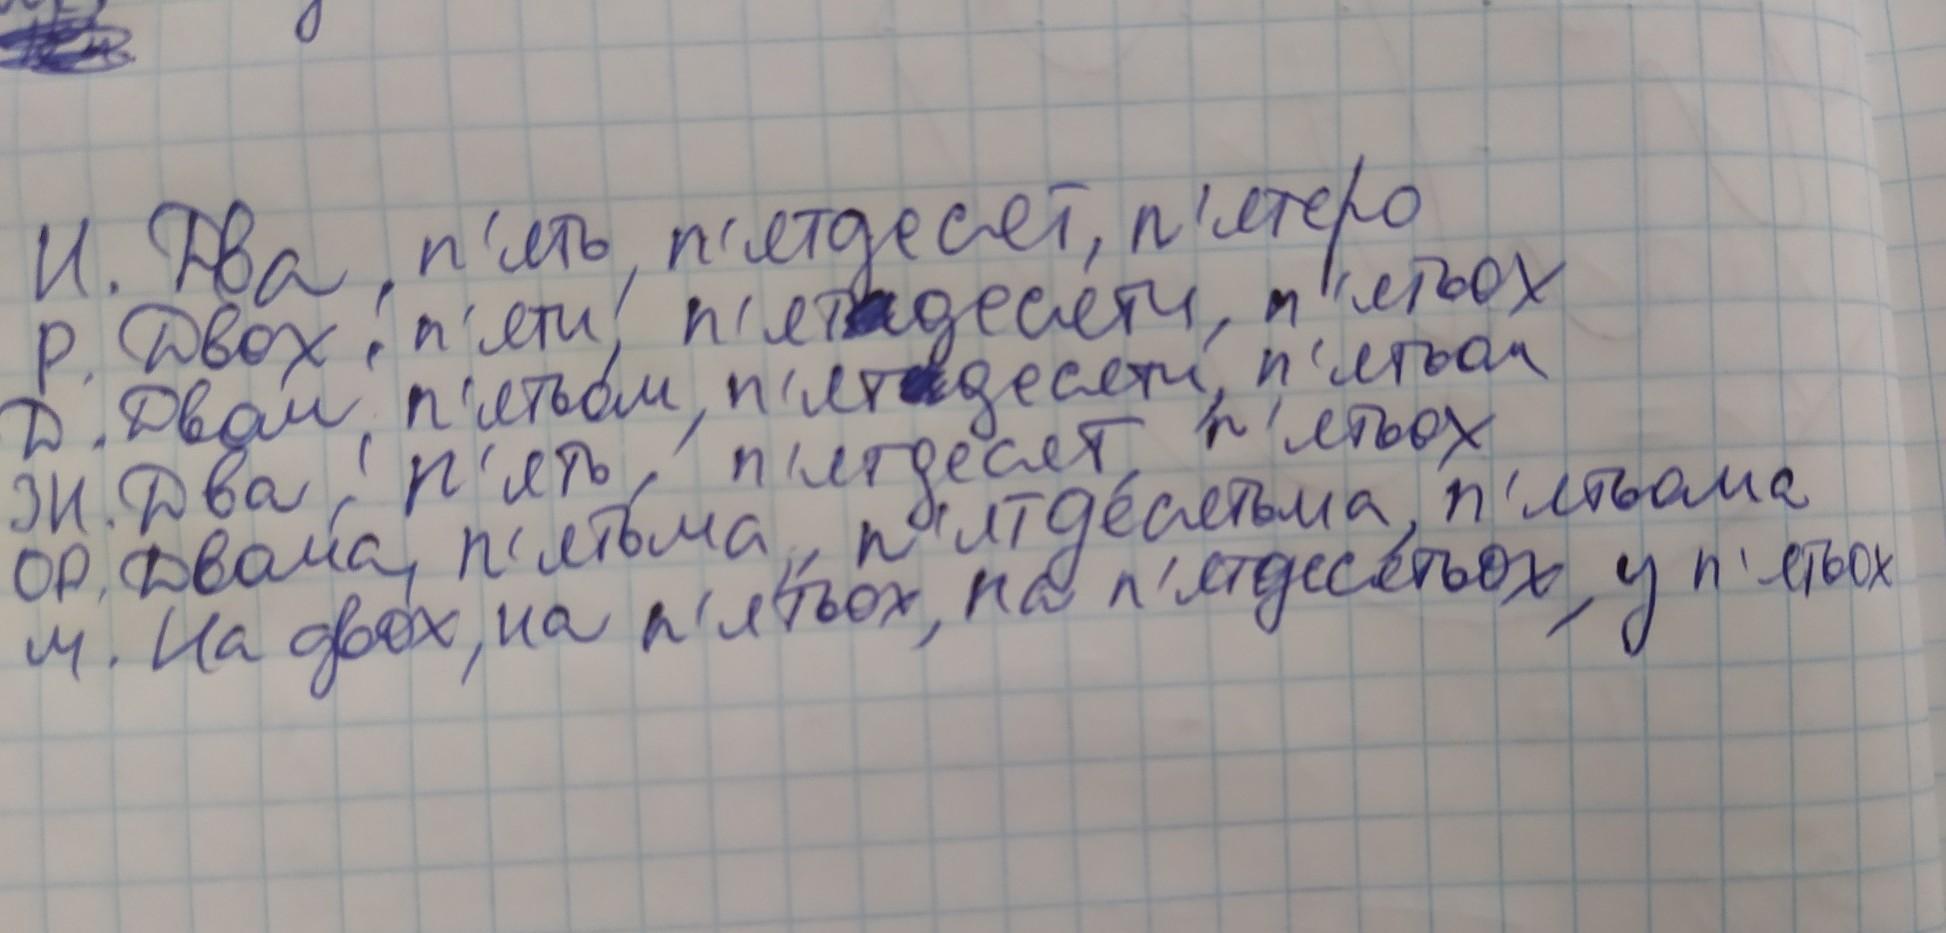 И. Два, п'ять, п'ятдесят, п'ятеро
Р. Двох, п'яти, п'ятдесяти, п'ятьох
Д. Двом, п'ятьом, п'ятдесяти, п'ятьом
ЗН. Два, п'ять, п'ятдесят, п'ятьох
ОР. Двома, п'ятьма, п'ятдесятьма, п'ятьома
М. На двох, на п'ятьох, на п'ятдесятьох, у п'ятьох